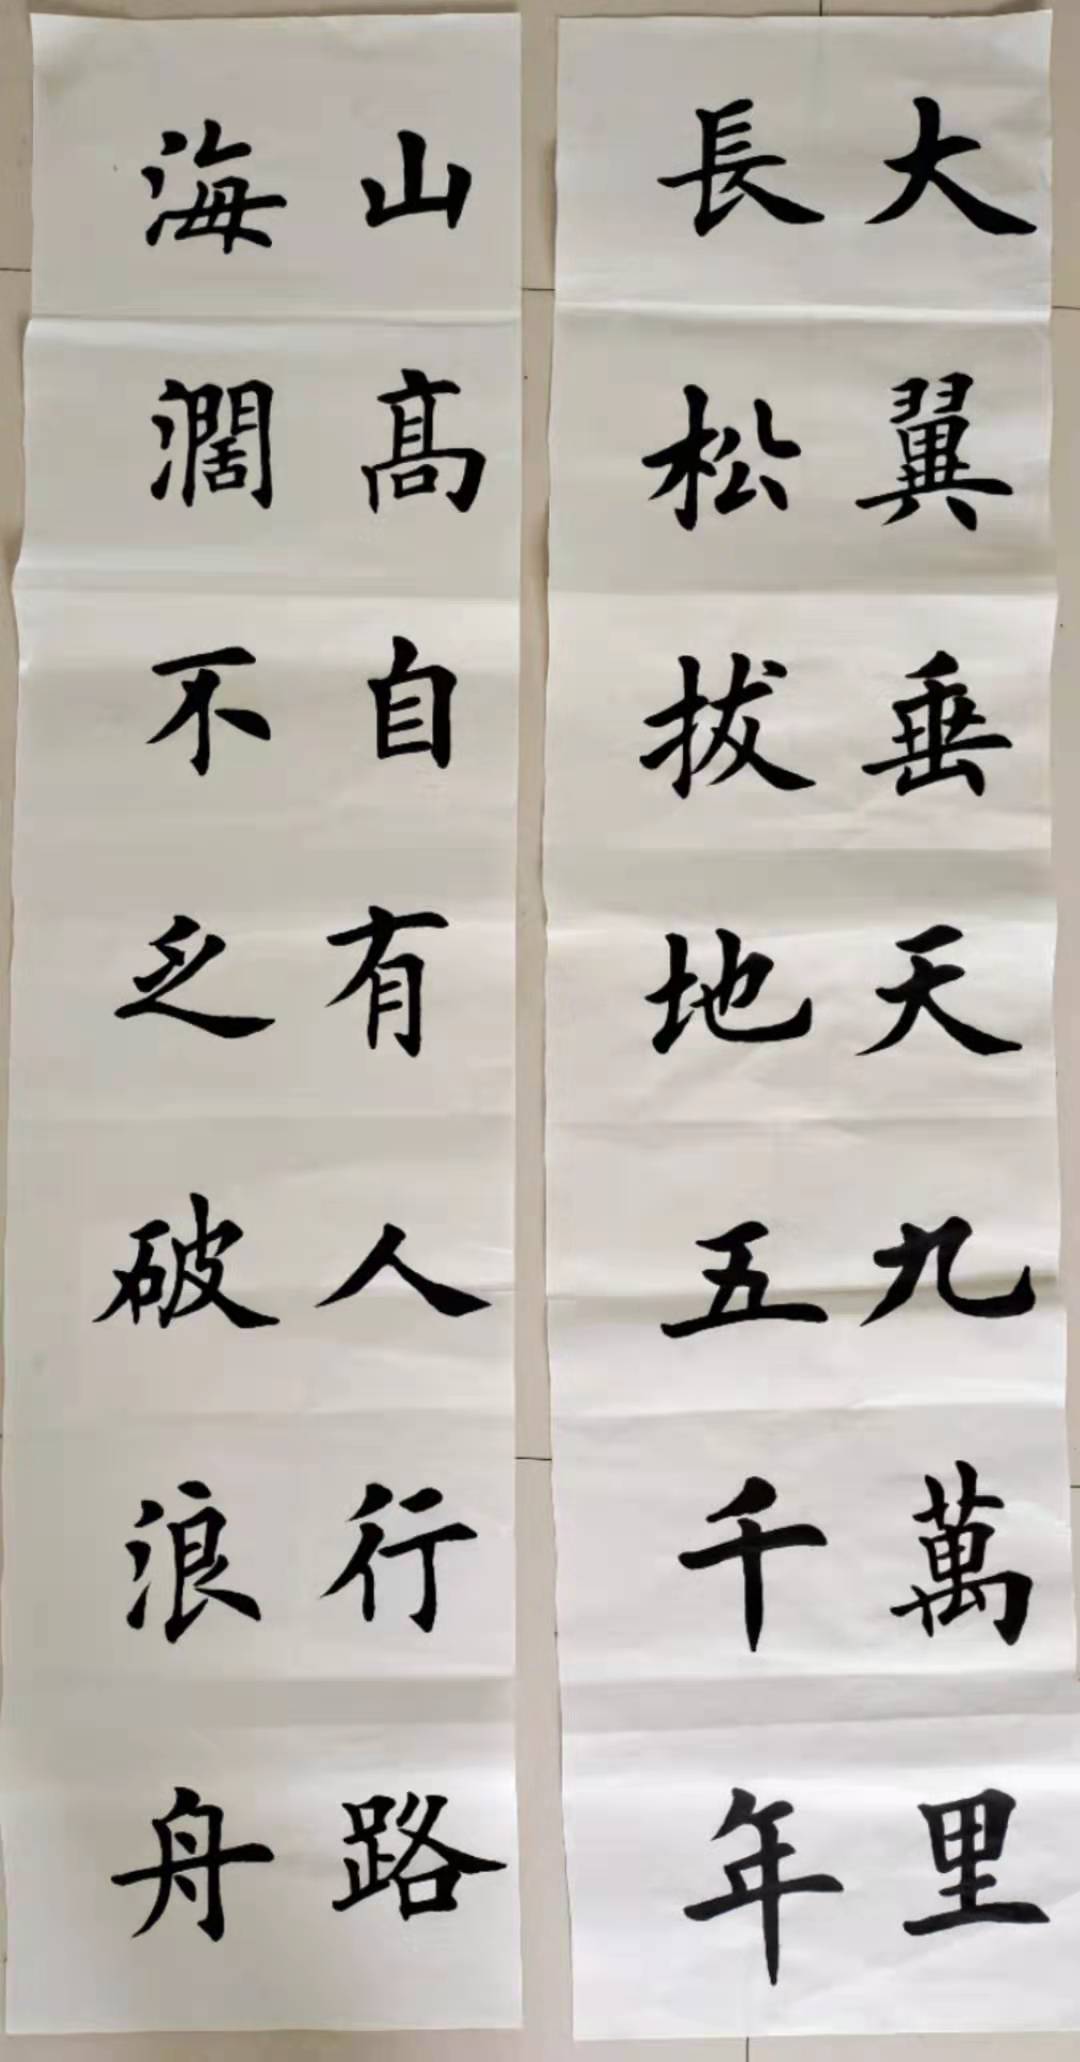 大翼垂天九萬里
長松拔地五千年
山高自有人行路
海濶不乏破浪舟